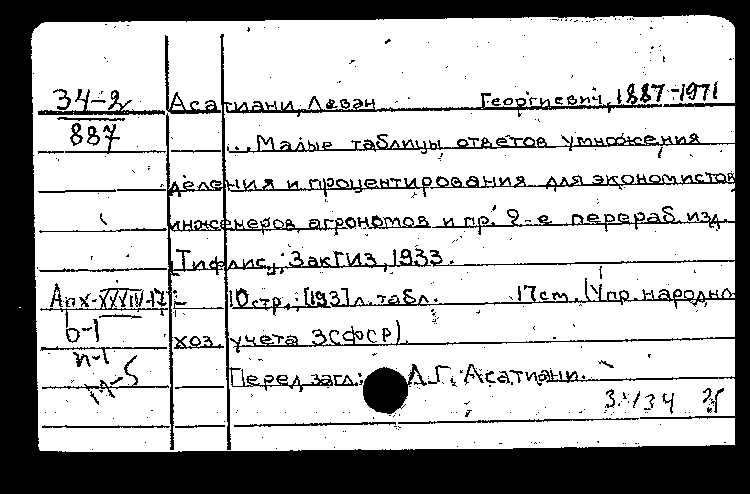 34-2 Асатиани, Леван Георгиевич, 1887-1971
887 ... Малые таблицы ответов умножения
деления и процентирования для экономистов
инженеров, агрономов и пр. 2-е перераб. изд.
[Тифлис], ЗакГИЗ, 1933.
Апх-XXXIV-17 10стр.; [193] л. табл. 17см. (Упр. народно-
хоз. учета ЗСФСР).
b-1
n-1
м-5
Перед загл.: Л.Г. Асатиани.